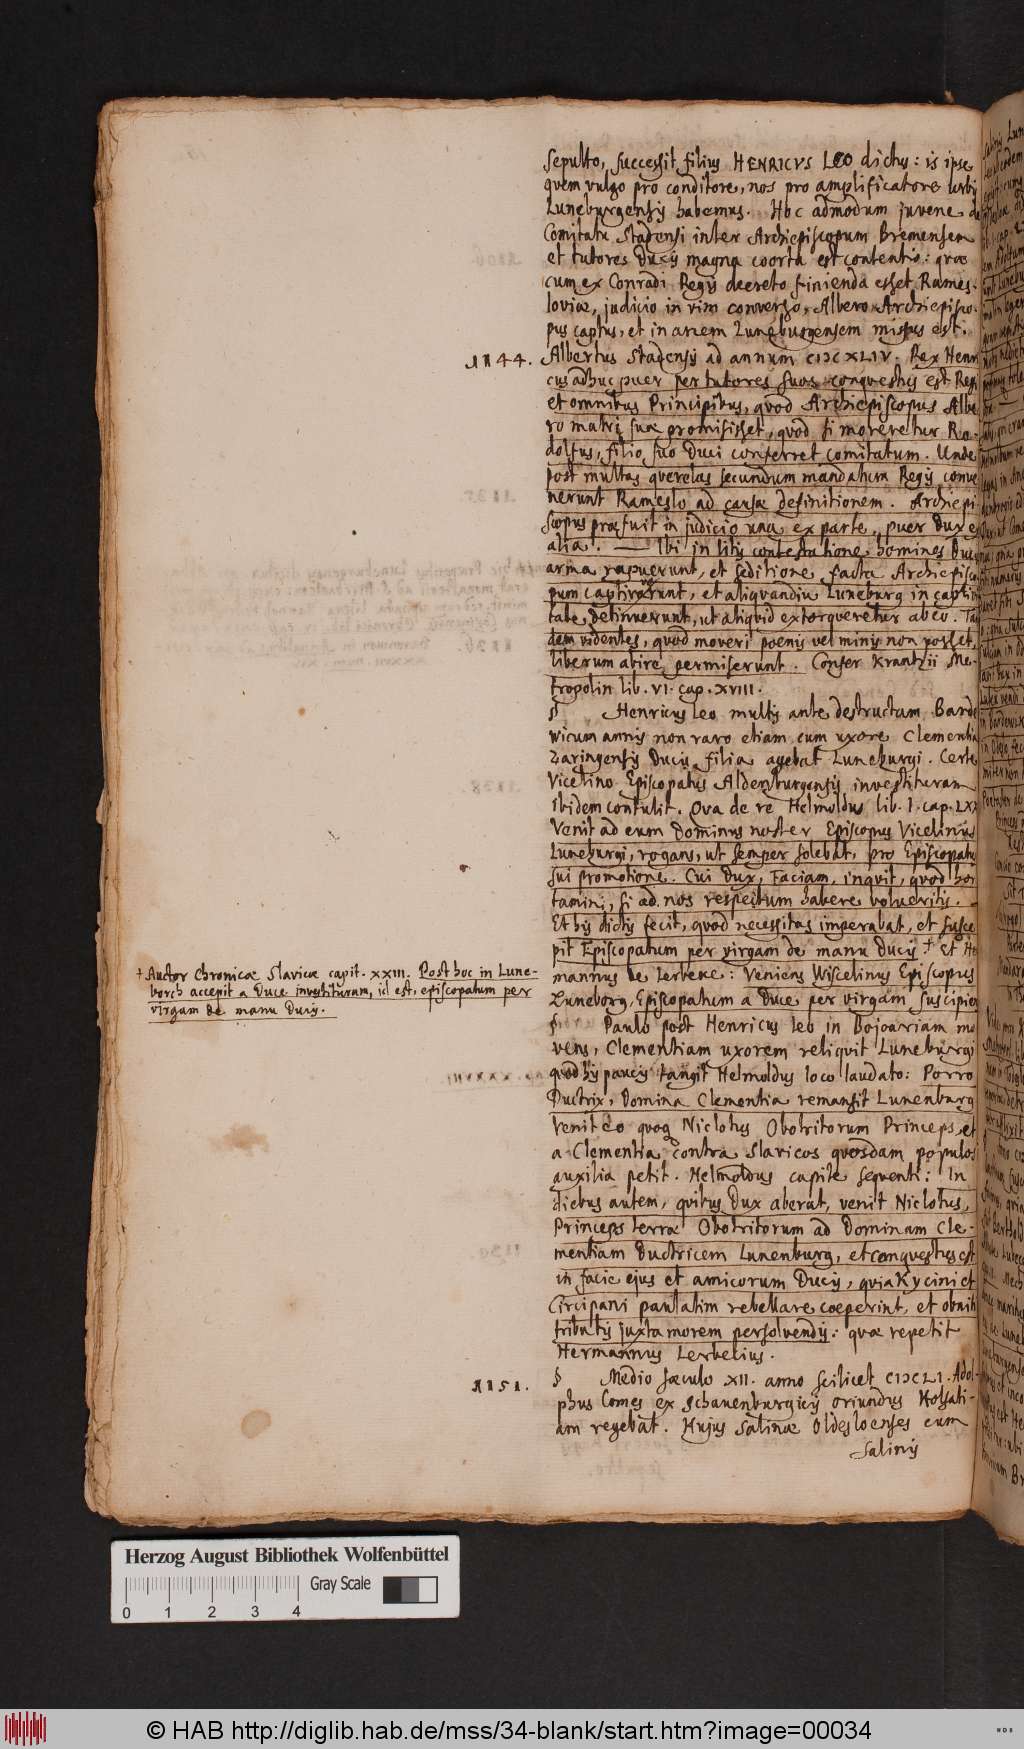 sepulto, successit filius HENRICVS LEO dictus: is ipse
quem vulgo pro conditore, nos pro amplificatore urbis
Luneburgensis habemus. Hoc admodum juvene de
Comitatu Stadensi inter Archiepiscopum Bremensem
et tutores Ducis magna coorta est contentio: quæ
cum ex Conradi Regis decreto finienda esset Rames-
loviæ, judicio in vim converso, Albero Archiepisco-
pus captus, et in arcem Luneburgensem missus est.
1144. Albertus Stadensis ad annum CIƆCXLIV. Rex Henri
cus adhuc puer per tutores suos conquestus est Regi
et omnibus Principibus, quod Archiepiscopus Albe
ro matri suæ promisisset, quod si moreretur Ru-
dolfus, filio suo Duci conferret comitatum. Unde
post multas querelas secundum mandatum Regis conve
nerunt Rameslo ad causæ definitionem. Archiepi
scopus præfuit in judicio una ex parte, puer Dux ex
alia. — Ibi in litis contestatione homines Ducis
arma rapuerunt, et seditione facta Archiepisco
pum captivaverunt, et aliquandiu Luneburg in captivi
tate detinuerunt, ut aliquid extorqueretur ab eo. Tan
dem videntes, quod moveri poenis vel minis non posset,
liberum abire permiserunt. Confer Krantzii Me-
tropolin lib. VI. cap. XVIII.
§ Henricus Leo multis ante destructam Bardo
wicum annis non raro etiam cum uxore Clementia
Zaringensis Ducis filia agebat Luneburgi. Certe
Vicelino Episcopatus Aldenburgensis investituram
ibidem contulit. Qua de re Helmoldus lib. I. cap. LXX
Venit ad eum Dominus noster Episcopus Vicelinus
Luneburgi, rogans, ut semper solebat, pro Episcopatus
sui promotione. Cui Dux, Faciam, inquit, quod hor
tamini, si ad nos respectum habere volueritis. —
Et his dictis fecit, quod necessitas imperabat, et susce
pit Episcopatum per virgam de manu Ducis. † Et Her
mannus de Lerbeke: Veniens Wiscelinus Episcopus
Luneborg, Episcopatum a Duce per virgam suscipiens
† Auctor Chronicæ Slavicæ capit. XXIII. Post hoc in Lune-
borch accepit a Duce investituram, id est, episcopatum per
virgam de manu Ducis.
§ Paulo post Henricus Leo in Bojoariam mo
vens, Clementiam uxorem reliquit Luneburgi
quod his paucis tangit Helmoldus loco laudato: Porro
Ductrix, Domina Clementia remansit Lunenburg
Venit eo quoque Niclotus Obotritorum Princeps, et
a Clementia contra Slavicos quosdam populos
auxilia petit. Helmoldus capite sequenti: In
diebus autem, quibus Dux aberat, venit Niclotus,
Princeps terræ Obotritorum ad Dominam Cle-
mentiam Ductricem Lunenburg, et conquestus est
in facie ejus et amicorum Ducis, quia Kycini et
Circipani paulatim rebellare coeperint, et obniti
tributis juxta morem persolvendis: quæ repetit
Hermannus Lerbecius.
1151. § Medio sæculo XII. anno scilicet CIƆCLI. Adol-
phus Comes ex Schauenburgicis oriundus Holsati-
am regebat. Hujus Salinæ Oldesloenses cum
Salinis
Herzog August Bibliothek Wolfenbüttel
Gray Scale
0 1 2 3 4
© HAB http://diglib.hab.de/mss/34-blank/start.htm?image=00034